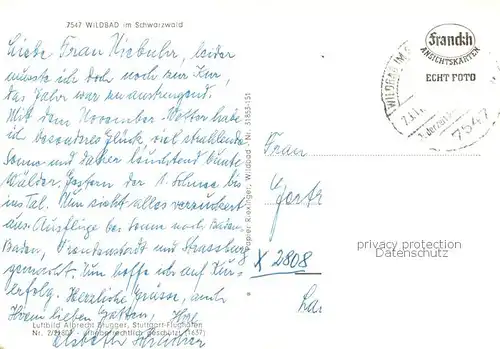 7547 WILDBAD im Schwarzwald
Liebe Frau Niebuhr, leider
musste ich doch noch zur Kur,
das Jahr war zu anstrengend.
Mit dem November-Wetter habe
ich besonderes Glück, viel strahlende
Sonne und daher leuchtend bunte
Wälder. Gestern der 1. Schnee bis
ins Tal. Nun sieht alles verzuckert
aus. Ausflüge bei Sonne nach Baden-
Baden, Freudenstadt und Strassburg
gemacht. Nun hoffe ich auf Kur-
erfolg. Herzliche Grüsse, auch
Ihrem lieben Gatten, Ihre
Elsbeth
Luftbild Albrecht Brugger, Stuttgart-Flughafen
Nr. 2/ urheberrechtlich geschützt (1637)
Papier Riexinger, Wildbad - Nr. 31853-151
Franckh
ANSICHTSKARTEN
ECHT FOTO
WILDBAD IM
7547
Frau
X 2808
privacy protection
Datenschutz